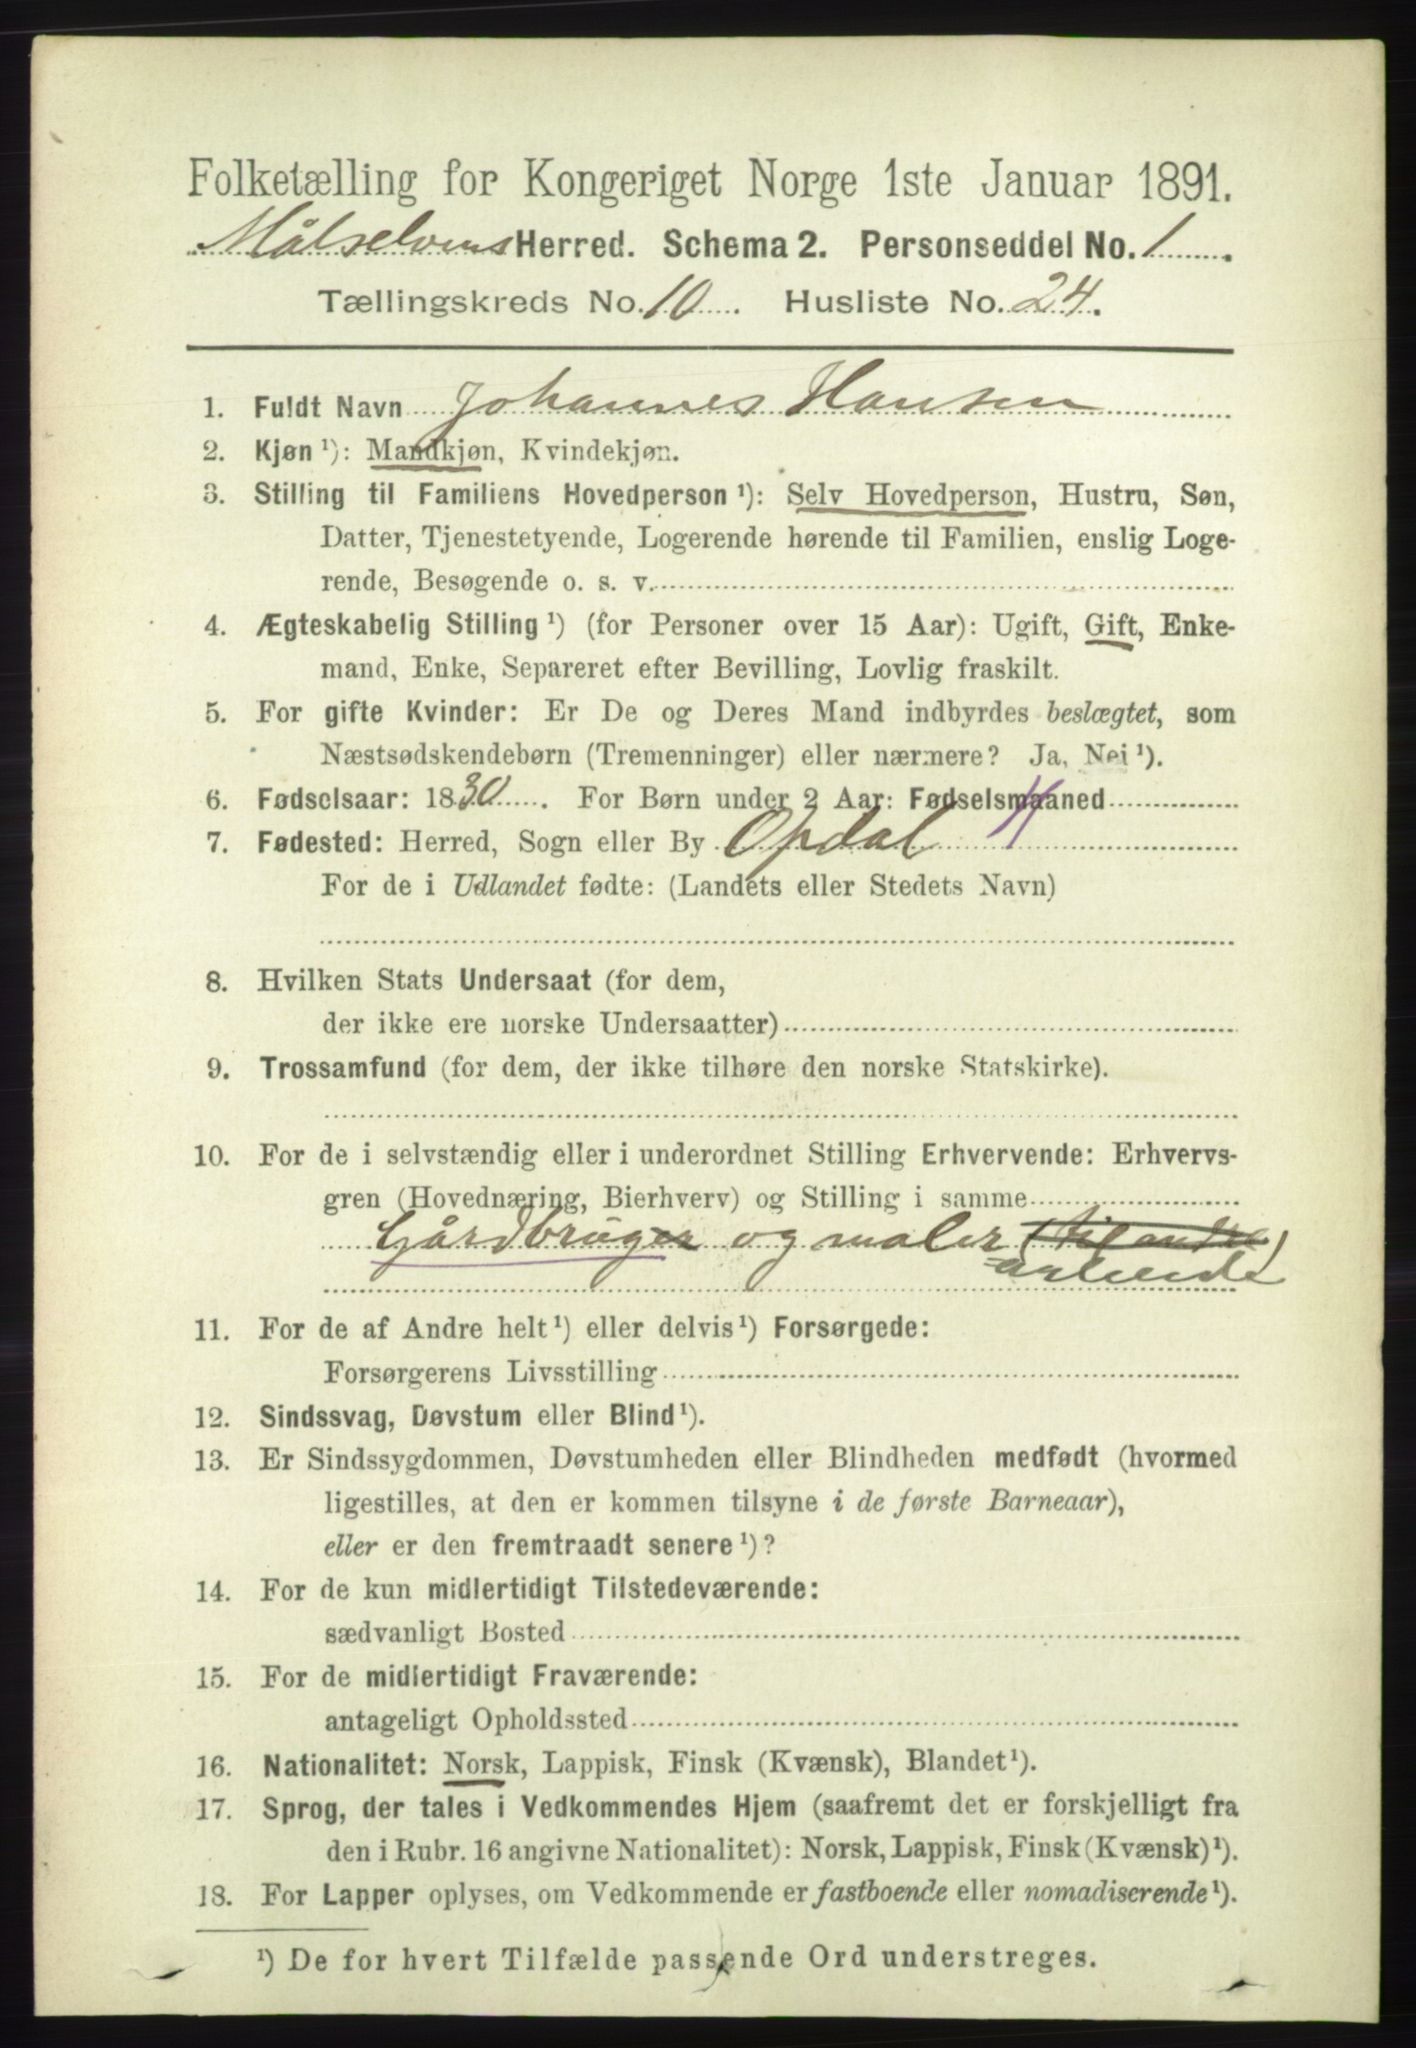 Folketælling for Kongeriget Norge 1ste Januar 1891.
Målselvens Herred. Schema 2. Personseddel No. 1.
Tællingskreds No. 10. Husliste No. 24.
1. Fuldt Navn Johannes Hansen
2. Kjøn ¹): Mandkjøn, Kvindekjøn.
3. Stilling til Familiens Hovedperson ¹): Selv Hovedperson, Hustru, Søn,
Datter, Tjenestetyende, Logerende hørende til Familien, enslig Loge-
rende, Besøgende o. s. v.
4. Ægteskabelig Stilling ¹) (for Personer over 15 Aar): Ugift, Gift, Enke-
mand, Enke, Separeret efter Bevilling, Lovlig fraskilt.
5. For gifte Kvinder: Er De og Deres Mand indbyrdes beslægtet, som
Næstsødskendebørn (Tremenninger) eller nærmere? Ja, Nei ¹).
6. Fødselsaar: 1830. For Børn under 2 Aar: Fødselsmaaned
7. Fødested: Herred, Sogn eller By Opdal
For de i Udlandet fødte: (Landets eller Stedets Navn)
8. Hvilken Stats Undersaat (for dem,
der ikke ere norske Undersaatter)
9. Trossamfund (for dem, der ikke tilhøre den norske Statskirke).
10. For de i selvstændig eller i underordnet Stilling Erhvervende: Erhvervs-
gren (Hovednæring, Bierhverv) og Stilling i samme
Gårdbruger og maler (til andre
arbeide)
11. For de af Andre helt ¹) eller delvis ¹) Forsørgede:
Forsørgerens Livsstilling
12. Sindssvag, Døvstum eller Blind ¹).
13. Er Sindssygdommen, Døvstumheden eller Blindheden medfødt (hvormed
ligestilles, at den er kommen tilsyne i de første Barneaar),
eller er den fremtraadt senere ¹)?
14. For de kun midlertidigt Tilstedeværende:
sædvanligt Bosted
15. For de midlertidigt Fraværende:
antageligt Opholdssted
16. Nationalitet: Norsk, Lappisk, Finsk (Kvænsk), Blandet ¹).
17. Sprog, der tales i Vedkommendes Hjem (saafremt det er forskjelligt fra
den i Rubr. 16 angivne Nationalitet): Norsk, Lappisk, Finsk (Kvænsk) ¹).
18. For Lapper oplyses, om Vedkommende er fastboende eller nomadiserende ¹).
¹) De for hvert Tilfælde passende Ord understreges.